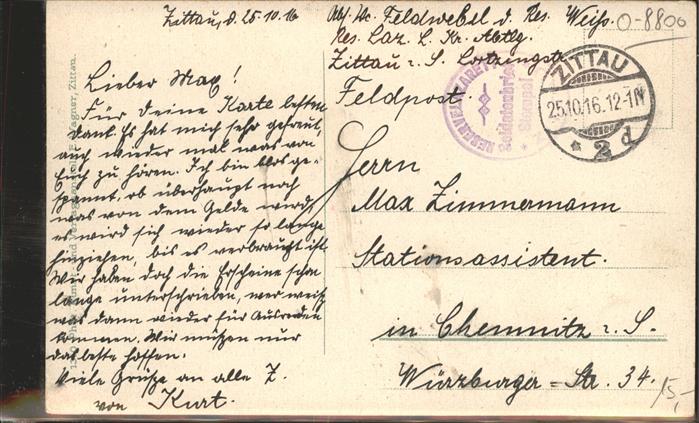 Zittau, d. 25.10.16
Lieber Max!
Für deine Karte besten
Dank. Es hat mich sehr gefreut,
auch wieder mal was von
Euch zu hören. Ich bin blos ge-
spannt, ob überhaupt noch
was von dem Gelde wird,
es wird sich wieder so lange
hinziehen, bis es verbraucht ist.
Wir haben doch die Scheine schon
lange unterschrieben, wer weiß
was dann wieder für Ausreden
kommen. Wir müssen nur
das beste hoffen.
Viele Grüße an alle Z.
von Kurt.
Abs. Feldwebel d. Res. Weiß.
Res. Laz. Kr. Abtlg.
Zittau i. S. Lortzingstr.
Feldpost.
O-8800
ZITTAU
25.10.16.12-1N
* 2 d
RESERVELAZARETT
Soldatenbrief
Stempel
Herrn
Max Zimmermann
Stationsassistent.
in Chemnitz i. S.
Würzburger-Str. 34.
15,-
Wagner, Zittau.